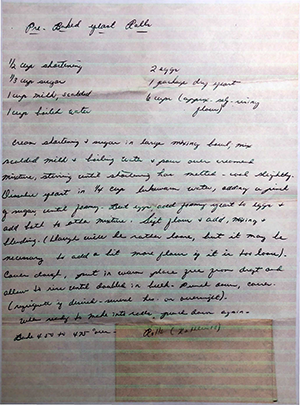 Pre-Baked Yeast Rolls
1/2 cup shortening 2 eggs
1/3 cup sugar 1 package dry yeast
1 cup milk, scalded 6 cups (approx. self-rising
1 cup boiled water flour)
Cream shortening & sugar in large mixing bowl, mix
scalded milk & boiling water & pour over creamed
mixture, stirring until shortening has melted - cool slightly.
Dissolve yeast in 1/4 cup lukewarm water, adding a pinch
of sugar, until foamy. Beat eggs, add foamy yeast to eggs &
add both to other mixture. Sift flour & add, mixing &
blending. (Dough will be rather loose, but it may be
necessary to add a bit more flour if it is too loose).
Cover dough, put in warm place free from draft and
allow to rise until doubled in bulk. Punch down, cover.
(refrigerate if desired - several hrs. or overnight).
When ready to make into rolls, punch down again.
Bake 450 to 475° oven - Rolls